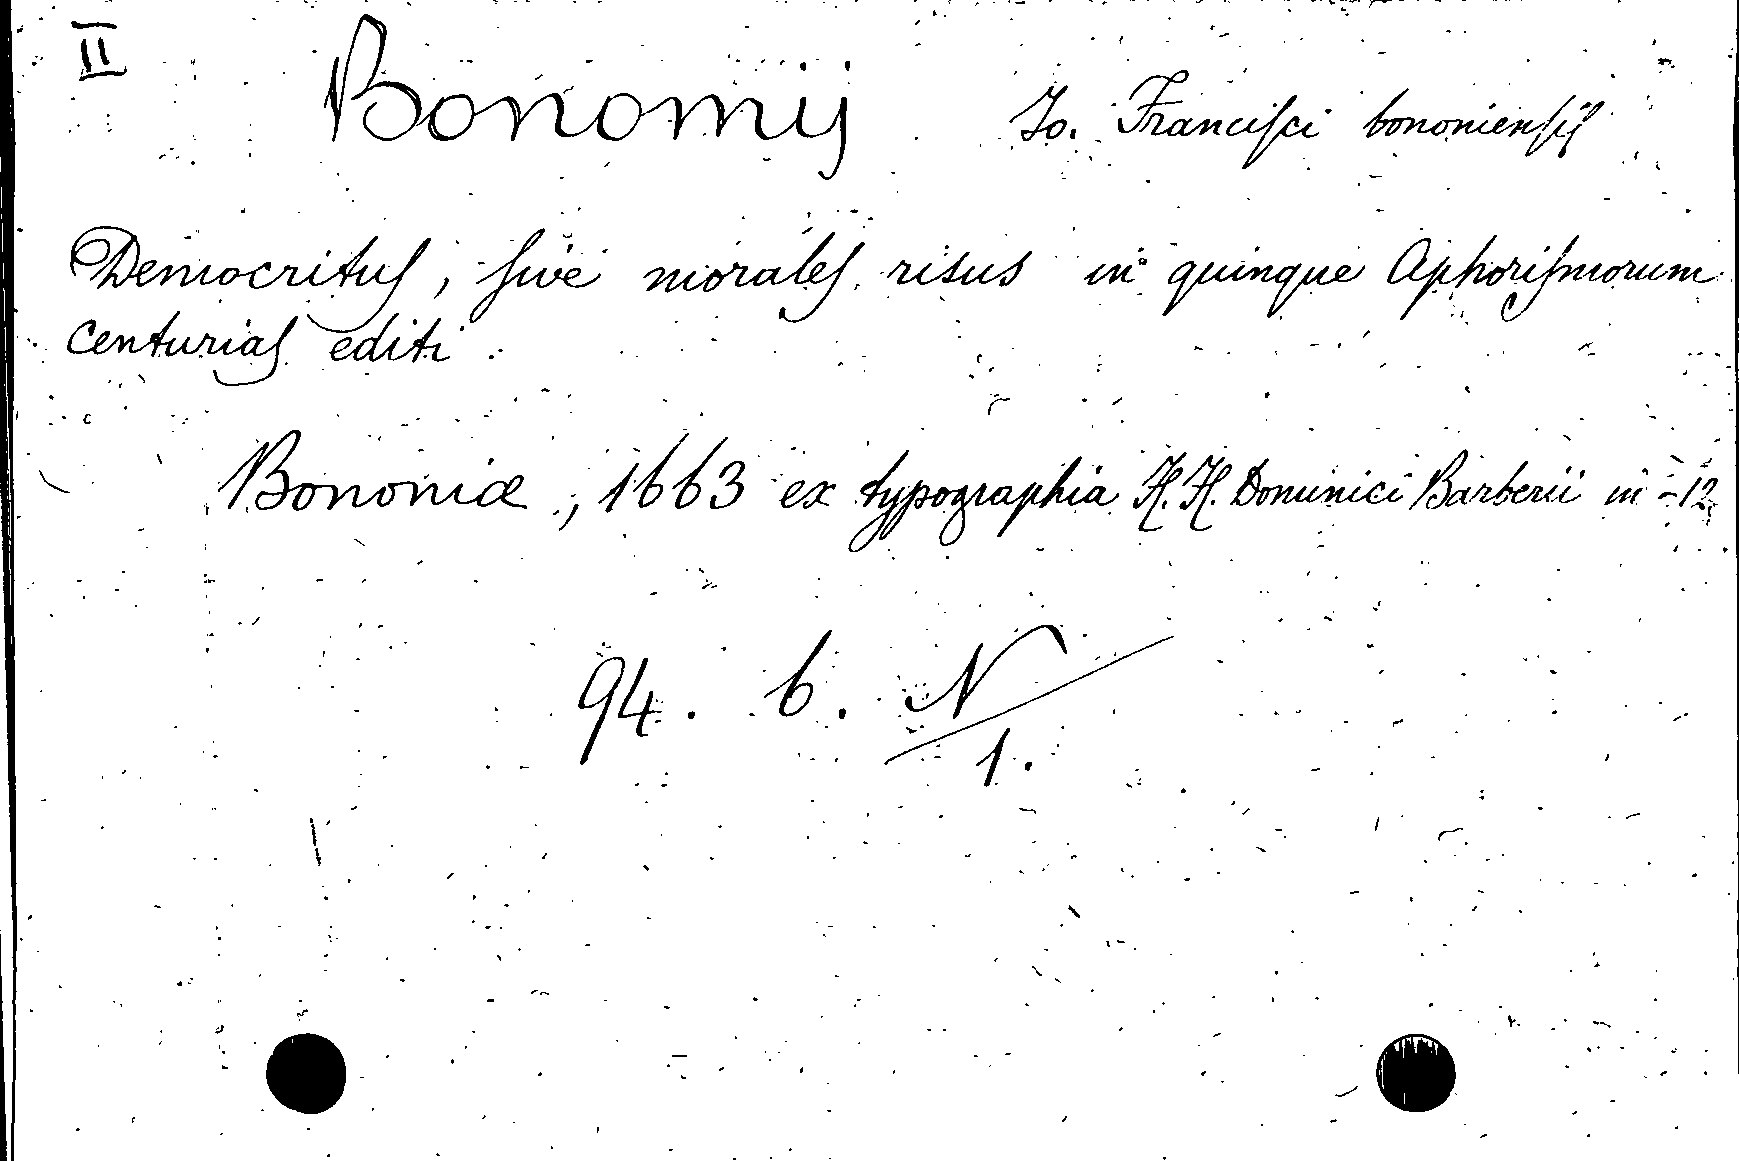 II
Bonomij Jo. Francisci bononiensis
Democritus, sive morales risus in quinque Aphorismorum
centurias editi.
Bononiæ, 1663 ex typographia H. H. Dominici Barberii in-12
94. b. N/1.